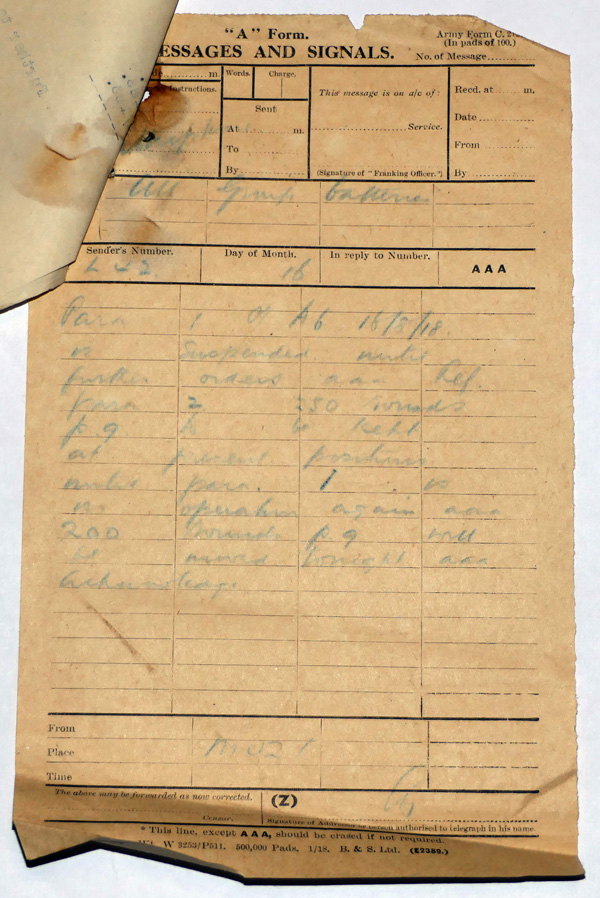 "A" Form.
Army Form C. 2
(In pads of 100.)
ESSAGES AND SIGNALS.
No. of Message
m.
Words.
Charge.
This message is on a/c of:
Recd. at m.
Instructions.
Sent
Date
At m.
Service.
To
From
By
(Signature of "Franking Officer.")
By
All Group batteries
Sender's Number.
Day of Month.
In reply to Number.
AAA
16
Para 1 of A6 16/8/18.
is suspended until
further orders aaa Ref.
para 2 250 rounds
p g to be kept
at present positions
until para. 1 is
in operation again aaa
200 rounds p g will
be moved tonight aaa
acknowledge
From
Place
Time
The above may be forwarded as now corrected.
(Z)
Censor.
Signature of Addressor or person authorised to telegraph in his name.
* This line, except AAA, should be erased if not required.
Wt. W 3253/P511. 500,000 Pads. 1/18. B. & S. Ltd. (E2389.)